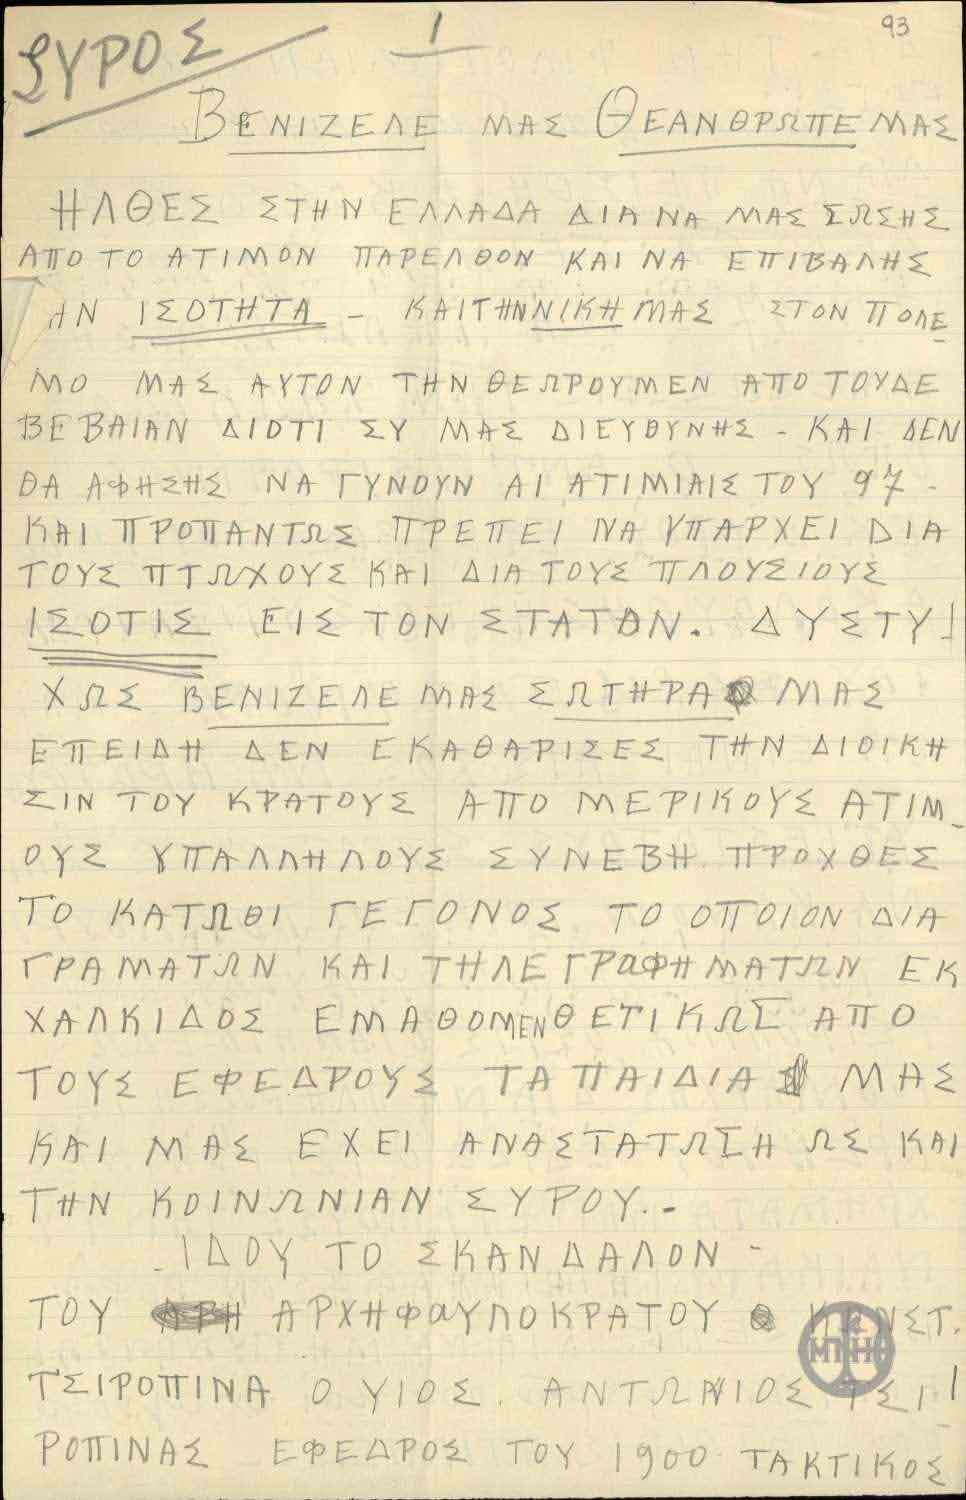 ΣΥΡΟΣ
1
93
ΒΕΝΙΖΕΛΕ ΜΑΣ ΘΕΑΝΘΡΩΠΕ ΜΑΣ
ΗΛΘΕΣ ΣΤΗΝ ΕΛΛΑΔΑ ΔΙΑ ΝΑ ΜΑΣ ΣΩΣΗΣ
ΑΠΟ ΤΟ ΑΤΙΜΟΝ ΠΑΡΕΛΘΟΝ ΚΑΙ ΝΑ ΕΠΙΒΑΛΗΣ
ΗΝ ΙΣΟΤΗΤΑ – ΚΑΙ ΤΗΝ ΝΙΚΗ ΜΑΣ ΣΤΟΝ ΠΟΛΕ
ΜΟ ΜΑΣ ΑΥΤΟΝ ΤΗΝ ΘΕΩΡΟΥΜΕΝ ΑΠΟ ΤΟΥΔΕ
ΒΕΒΑΙΑΝ ΔΙΟΤΙ ΣΥ ΜΑΣ ΔΙΕΥΘΥΝΗΣ - ΚΑΙ ΔΕΝ
ΘΑ ΑΦΗΣΗΣ ΝΑ ΓΥΝΟΥΝ ΑΙ ΑΤΙΜΙΑΙΣ ΤΟΥ 97 -
ΚΑΙ ΠΡΟΠΑΝΤΩΣ ΠΡΕΠΕΙ ΝΑ ΥΠΑΡΧΕΙ ΔΙΑ
ΤΟΥΣ ΠΤΩΧΟΥΣ ΚΑΙ ΔΙΑ ΤΟΥΣ ΠΛΟΥΣΙΟΥΣ
ΙΣΟΤΙΣ ΕΙΣ ΤΟΝ ΣΤΑΤΟΝ. ΔΥΣΤΥ
ΧΩΣ ΒΕΝΙΖΕΛΕ ΜΑΣ ΣΩΤΗΡΑ ΜΑΣ
ΕΠΕΙΔΗ ΔΕΝ ΕΚΑΘΑΡΙΣΕΣ ΤΗΝ ΔΙΟΙΚΗ
ΣΙΝ ΤΟΥ ΚΡΑΤΟΥΣ ΑΠΟ ΜΕΡΙΚΟΥΣ ΑΤΙΜ-
ΟΥΣ ΥΠΑΛΛΗΛΟΥΣ ΣΥΝΕΒΗ ΠΡΟΧΘΕΣ
ΤΟ ΚΑΤΩΘΙ ΓΕΓΟΝΟΣ ΤΟ ΟΠΟΙΟΝ ΔΙΑ
ΓΡΑΜΑΤΩΝ ΚΑΙ ΤΗΛΕΓΡαΦΗΜΑΤΩΝ ΕΚ
ΧΑΛΚΙΔΟΣ ΕΜΑΘΟΜΕΝ ΘΕΤΙΚΩΣ ΑΠΟ
ΤΟΥΣ ΕΦΕΔΡΟΥΣ ΤΑ ΠΑΙΔΙΑ ΜΑΣ
ΚΑΙ ΜΑΣ ΕΧΕΙ ΑΝΑΣΤΑΤΩΣΗ ΩΣ ΚΑΙ
ΤΗΝ ΚΟΙΝΩΝΙΑΝ ΣΥΡΟΥ.-
- ΙΔΟΥ ΤΟ ΣΚΑΝΔΑΛΟΝ -
ΤΟΥ ΑΡΧΗΦαΥΛΟΚΡΑΤΟΥ ΚΩΝΣΤ.
ΤΣΙΡΟΠΙΝΑ Ο ΥΙΟΣ. ΑΝΤΩΝΙΟΣ ΤΣΙ
ΡΟΠΙΝΑΣ ΕΦΕΔΡΟΣ ΤΟΥ 1900 ΤΑΚΤΙΚΟΣ